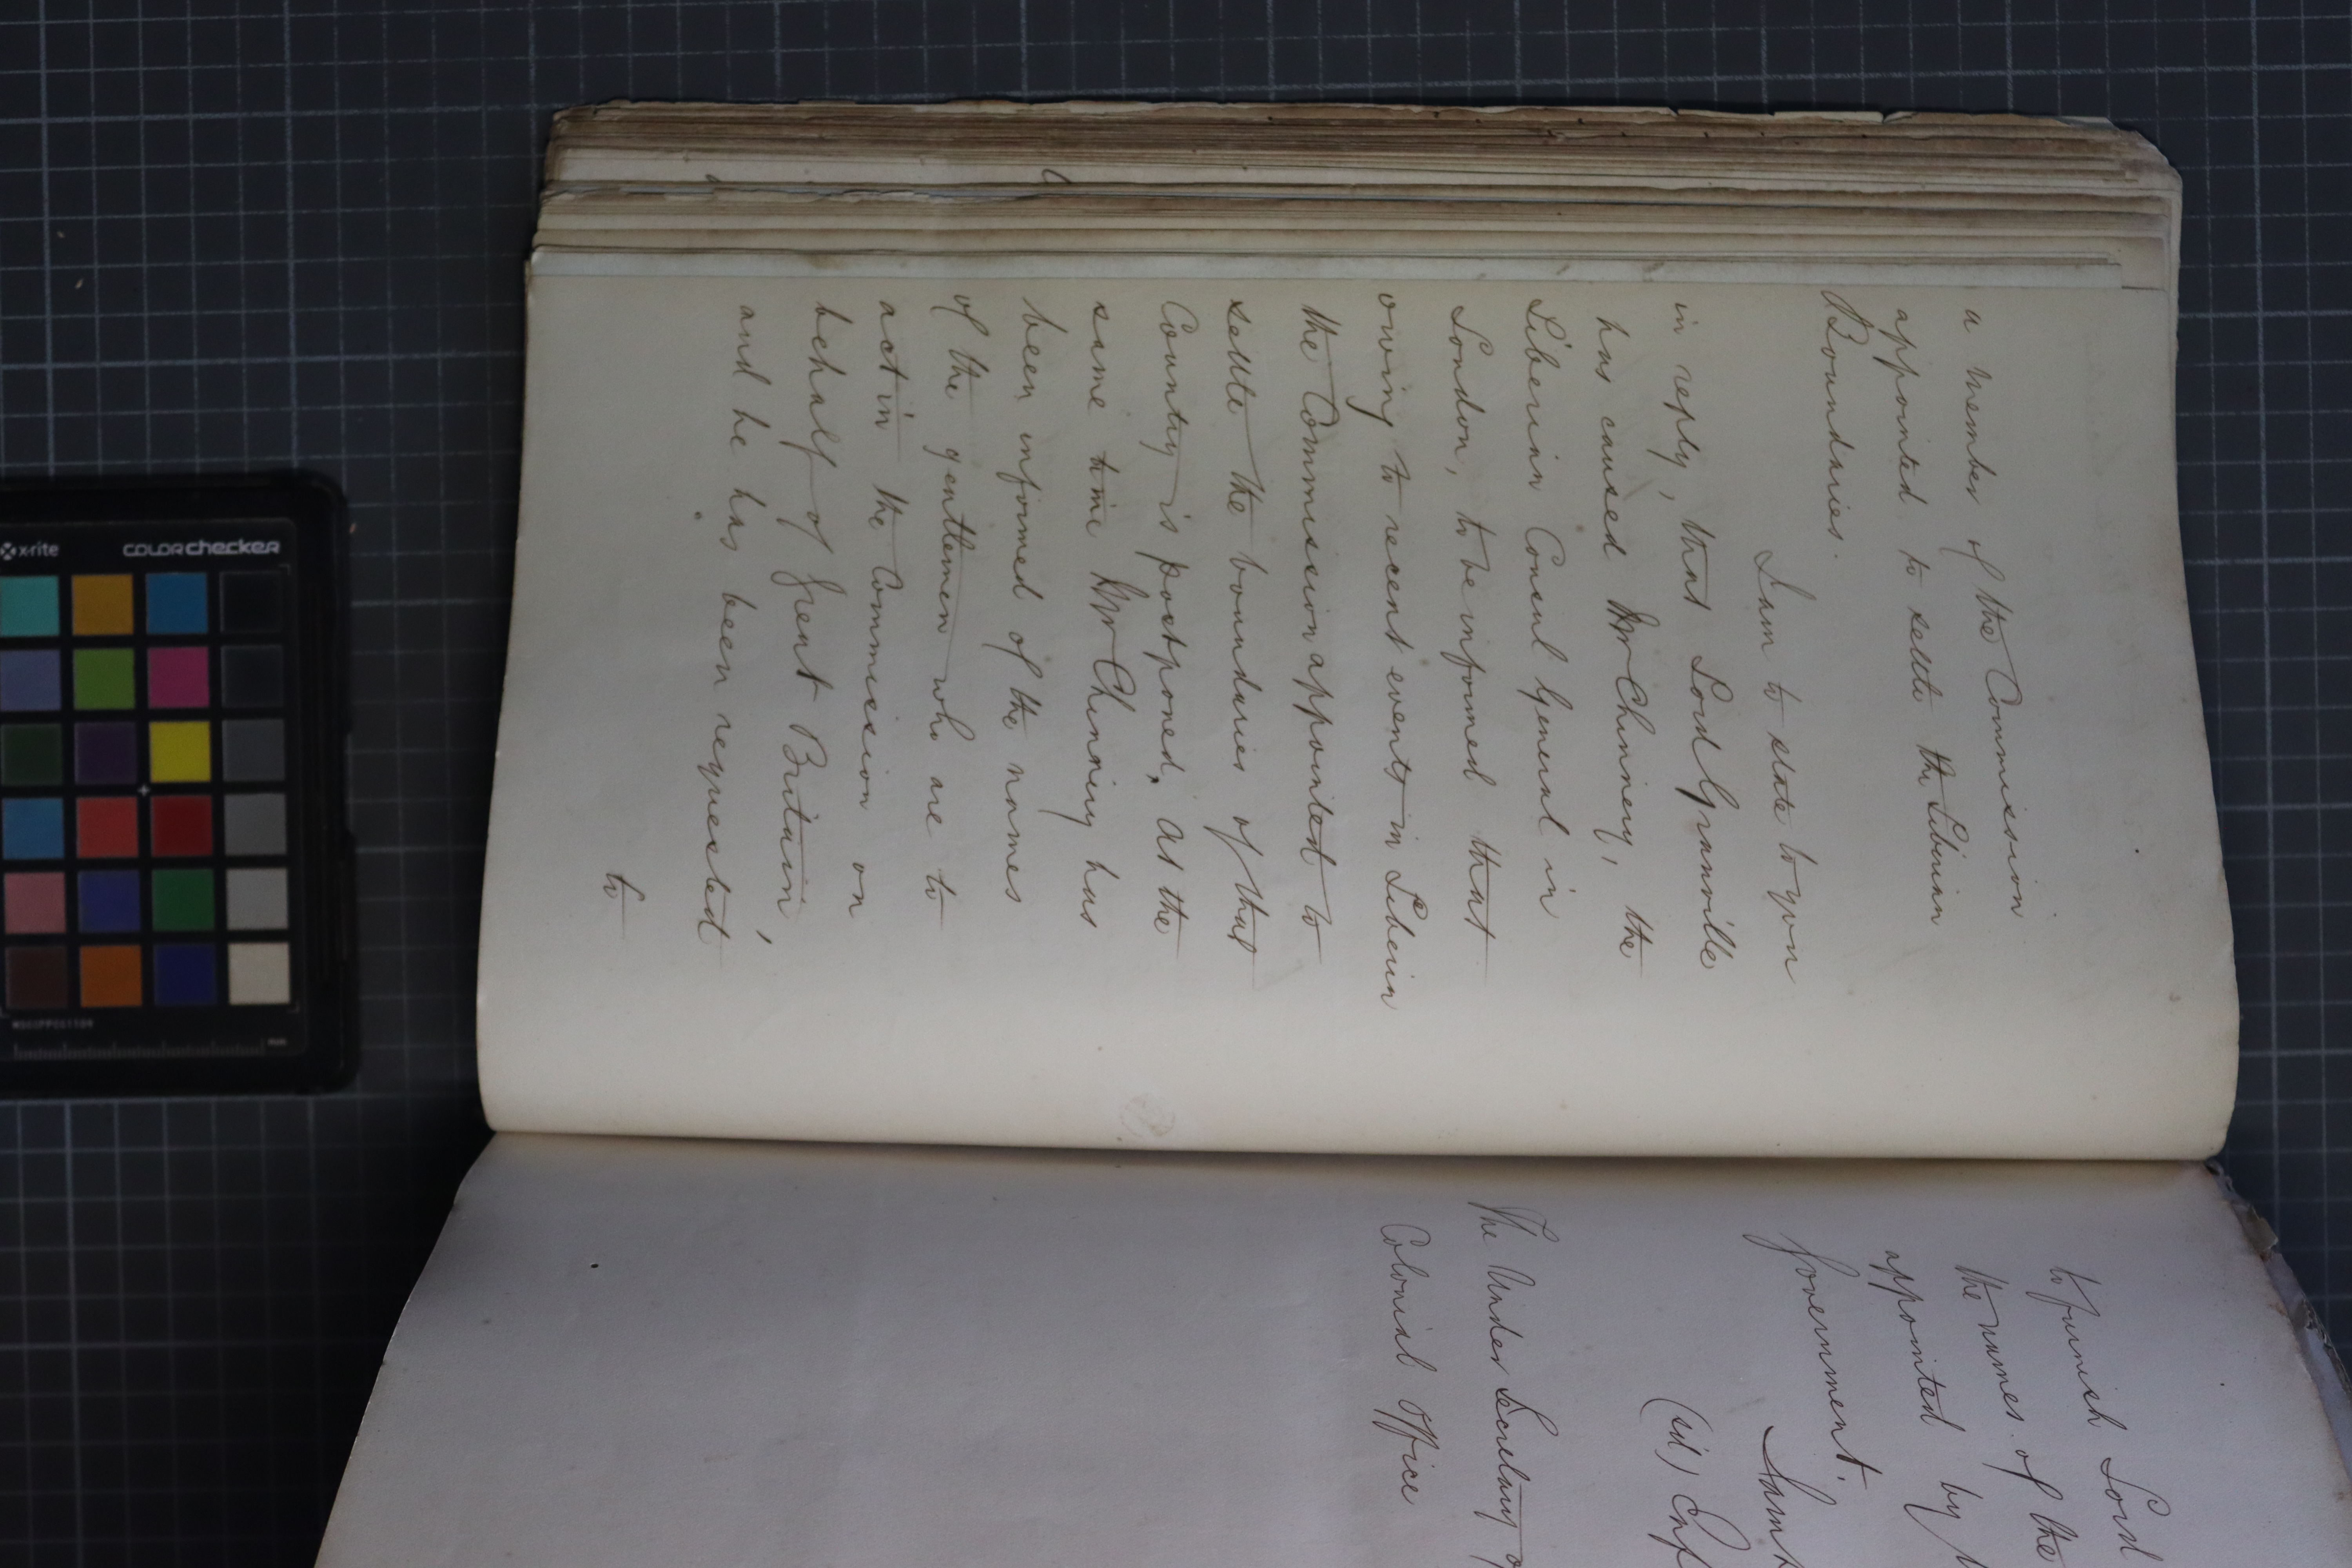 a member of the Commission
appointed to settle the Liberian
Boundaries.
I am to state to you
in reply, that Lord Granville
has caused Mr Chinnery, the
Liberian Consul General in
London, to be informed that
owing to recent events in Liberia
the Commission appointed to
settle the boundaries of that
Country is postponed. At the
same time Mr Chinnery has
been informed of the names
of the gentlemen who are to
act in the Commission on
behalf of Great Britain,
and he has been requested
to
to furnish Lord
the names of the
appointed by
Government.
I am
(sd)
The Under Secretary
Colonial Office
x-rite
colorchecker